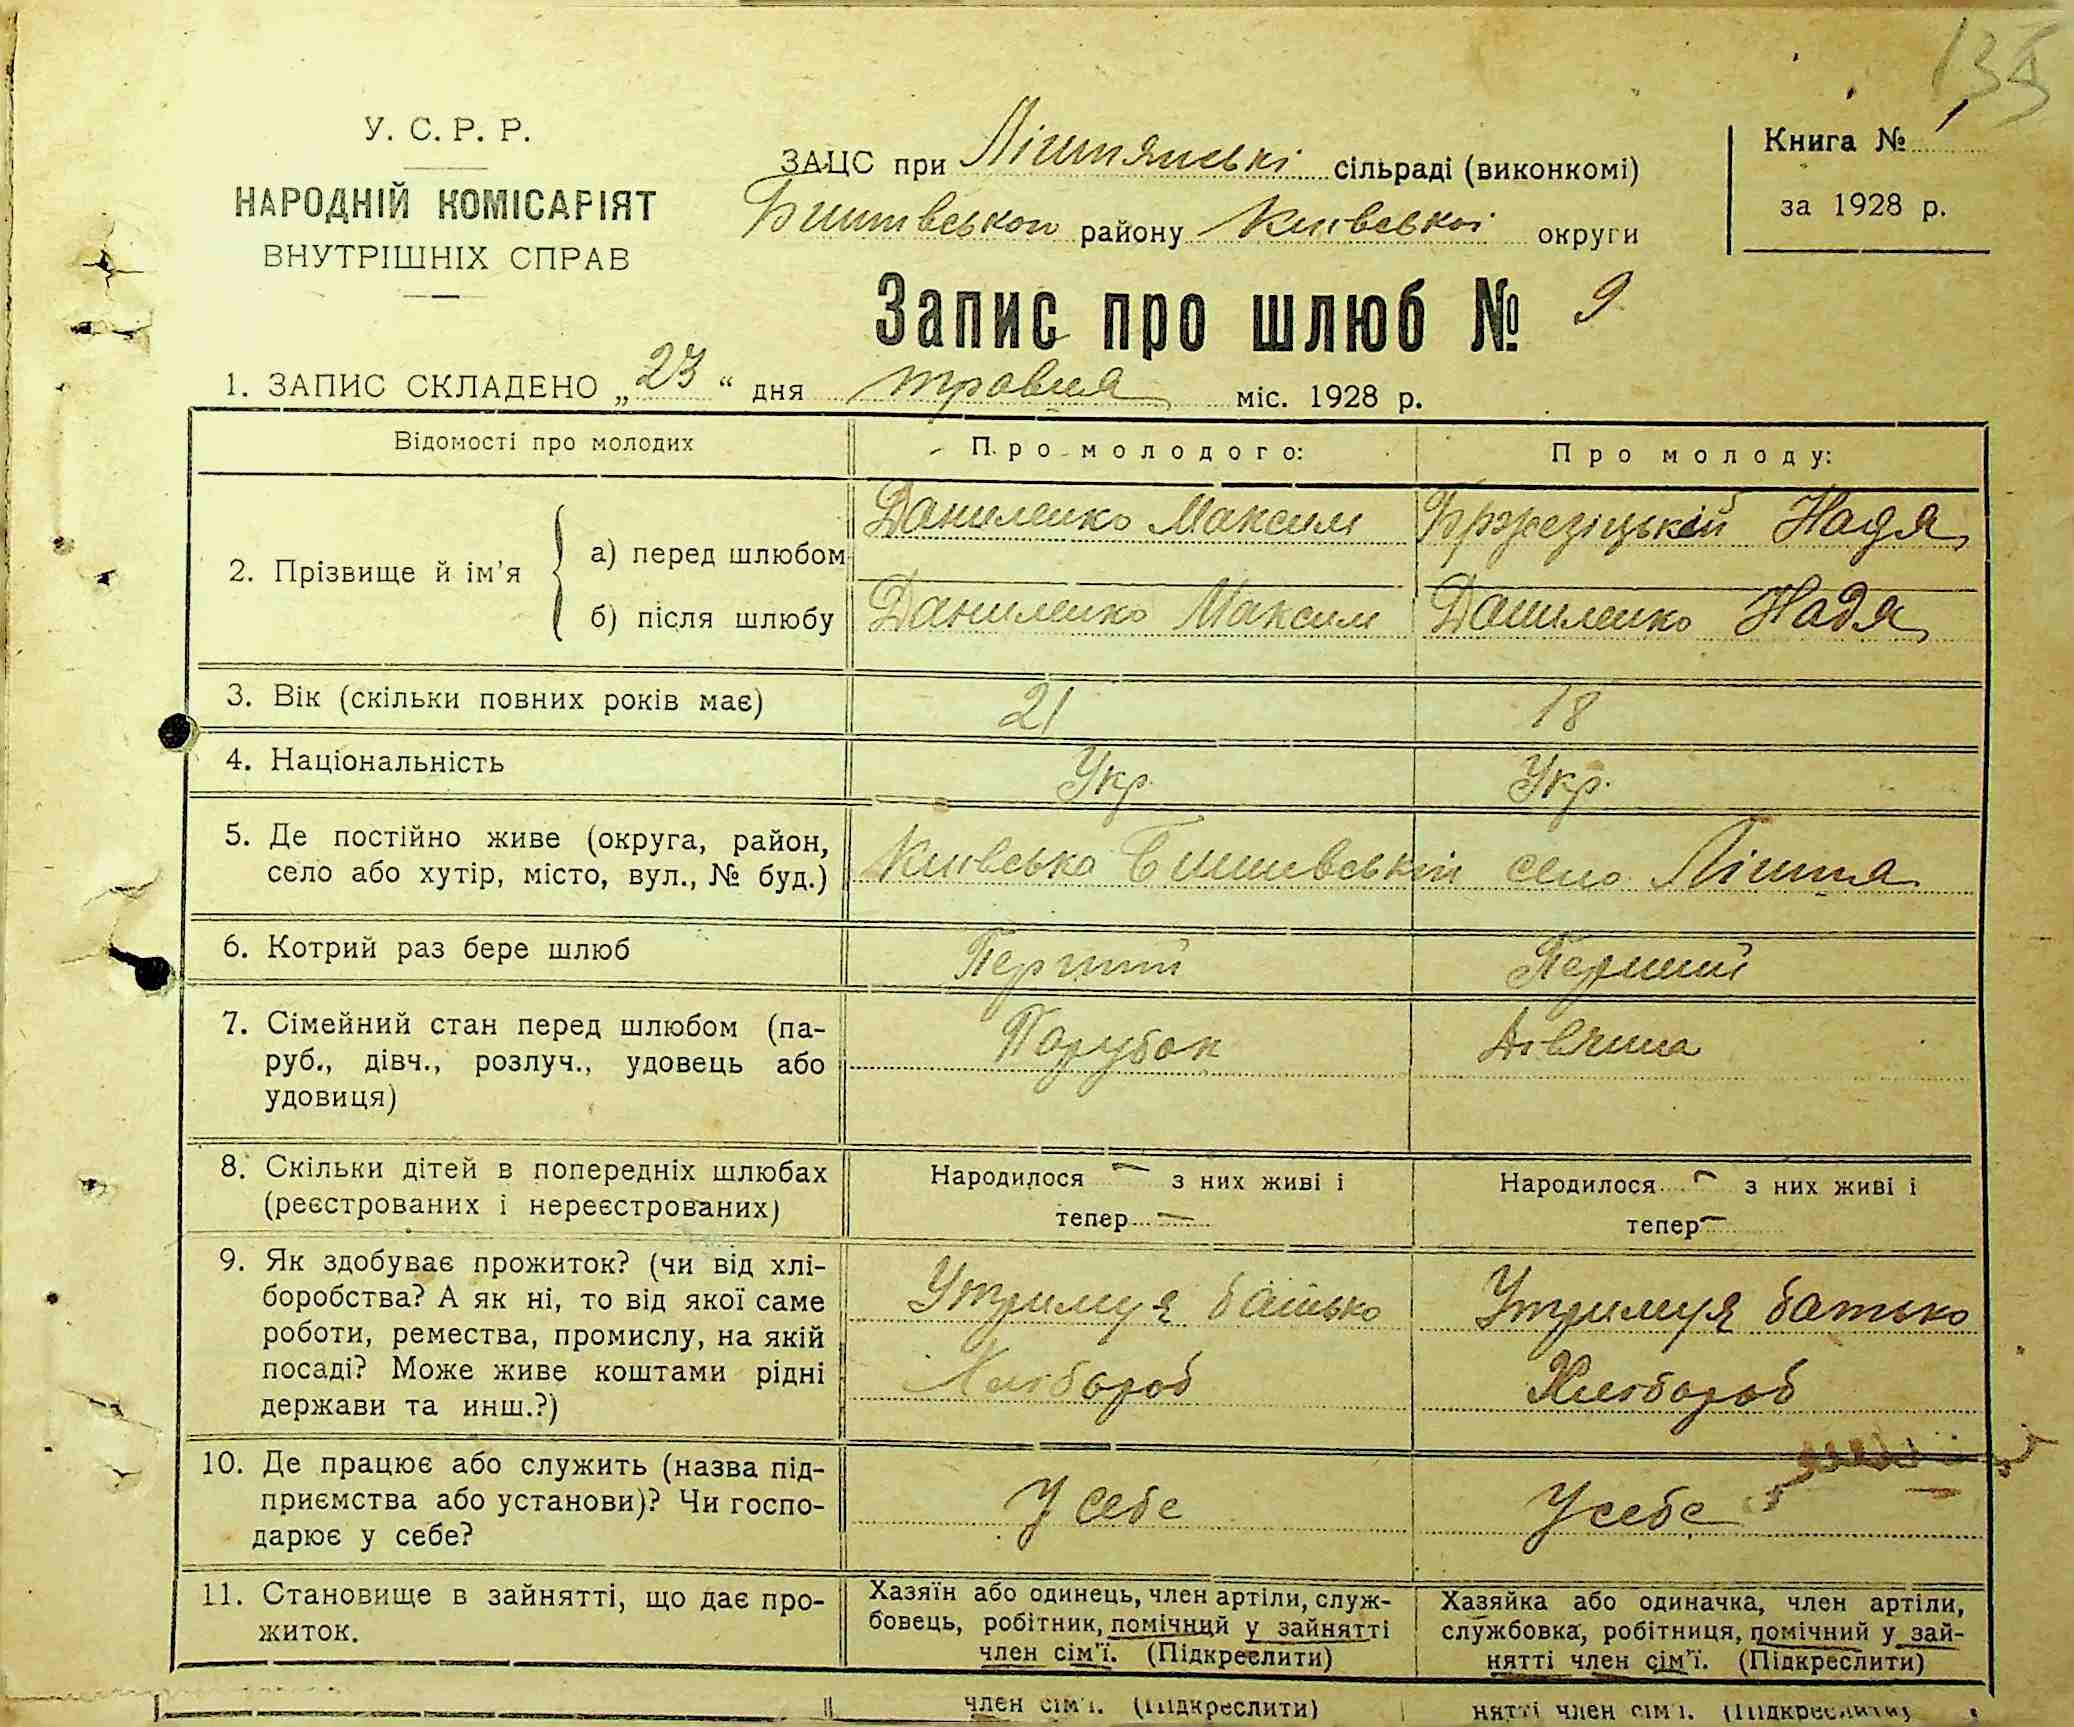 135
У. С. Р. Р.
НАРОДНІЙ КОМІСАРІЯТ
ВНУТРІШНІХ СПРАВ
ЗАЦС при Лішнянські сільраді (виконкомі)
Бишівськой району Київської округи
Книга № 1
за 1928 р.
Запис про шлюб № 9
1. ЗАПИС СКЛАДЕНО „23“ дня травня міс. 1928 р.
Відомості про молодих
Про молодого:
Про молоду:
2. Прізвище й ім'я
а) перед шлюбом
Даниленко Максим
Бржезіцькій Надя
б) після шлюбу
Даниленко Максим
Даниленко Надя
3. Вік (скільки повних років має)
21
18
4. Національність
Укр.
Укр.
5. Де постійно живе (округа, район,
село або хутір, місто, вул., № буд.)
Київська Бишівській село Лішня
6. Котрий раз бере шлюб
Перший
Перший
7. Сімейний стан перед шлюбом (па-
руб., дівч., розлуч., удовець або
удовиця)
Парубок
Дівчина
8. Скільки дітей в попередніх шлюбах
(реєстрованих і нереєстрованих)
Народилося — з них живі і
тепер —
Народилося — з них живі і
тепер —
9. Як здобуває прожиток? (чи від хлі-
боробства? А як ні, то від якої саме
роботи, ремества, промислу, на якій
посаді? Може живе коштами рідні
держави та инш.?)
Утримуя батько
Хлібороб
Утримуя батько
Хлібороб
10. Де працює або служить (назва під-
приємства або установи)? Чи госпо-
дарює у себе?
У себе
У себе
11. Становище в зайнятті, що дає про-
житок.
Хазяїн або одинець, член артіли, служ-
бовець, робітник, помічний у зайнятті
член сім'ї. (Підкреслити)
Хазяйка або одиначка, член артіли,
службовка, робітниця, помічний у зай-
нятті член сім'ї. (Підкреслити)
член сім'ї. (Підкреслити)
нятті член сім'ї. (Підкреслити)